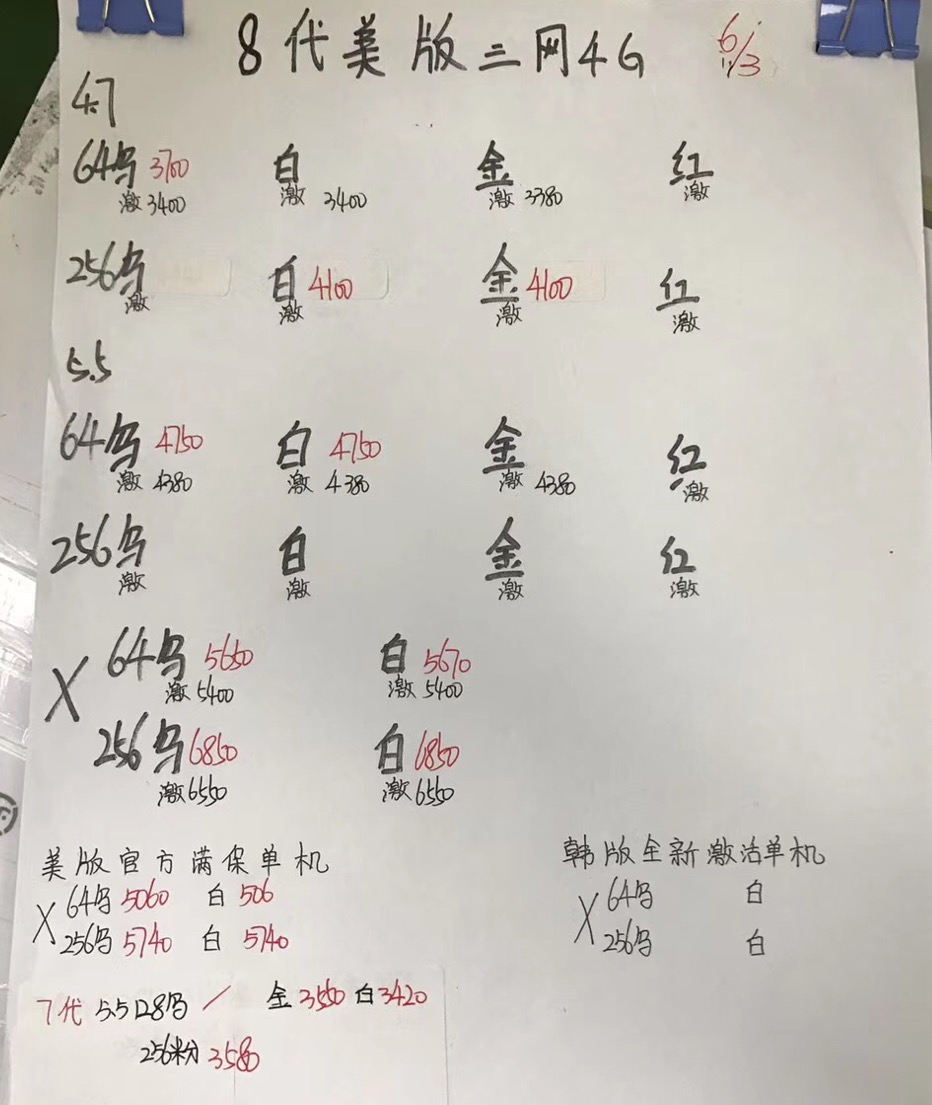 8代美版三网4G 6/3
4.7
64乌 3700 白 金 红
激 3400 激 3400 激 3380 激
256乌 白 4100 金 4100 红
激 激 激 激
5.5
64乌 4750 白 4750 金 红
激 4380 激 4380 激 4380 激
256乌 白 金 红
激 激 激 激
X 64乌 5650 白 5670
激 5400 激 5400
256乌 6850 白 6850
激 6550 激 6550
美版官方满保单机
X 64乌 5060 白 506
256乌 5740 白 5740
韩版全新激活单机
X 64乌 白
256乌 白
7代 5.5 128乌 / 金 3550 白 3420
256粉 3580